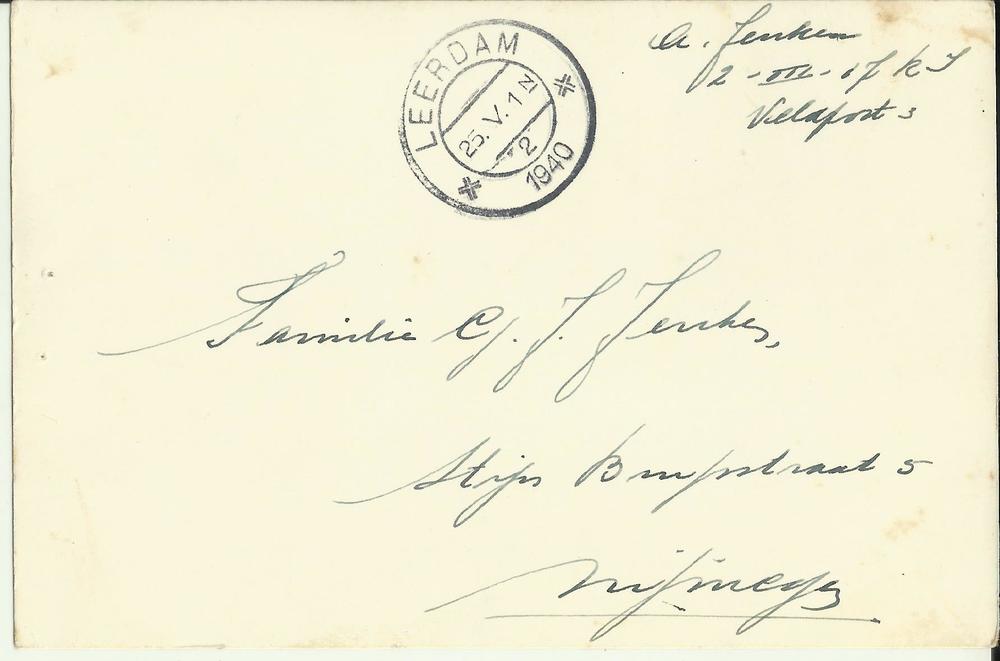 A. Jenken
2-III-17 R I
Veldpost 3
LEERDAM
25.V.1 N
2
1940
Familie J. Jenken,
Stijn Buijsstraat 5
Nijmegen